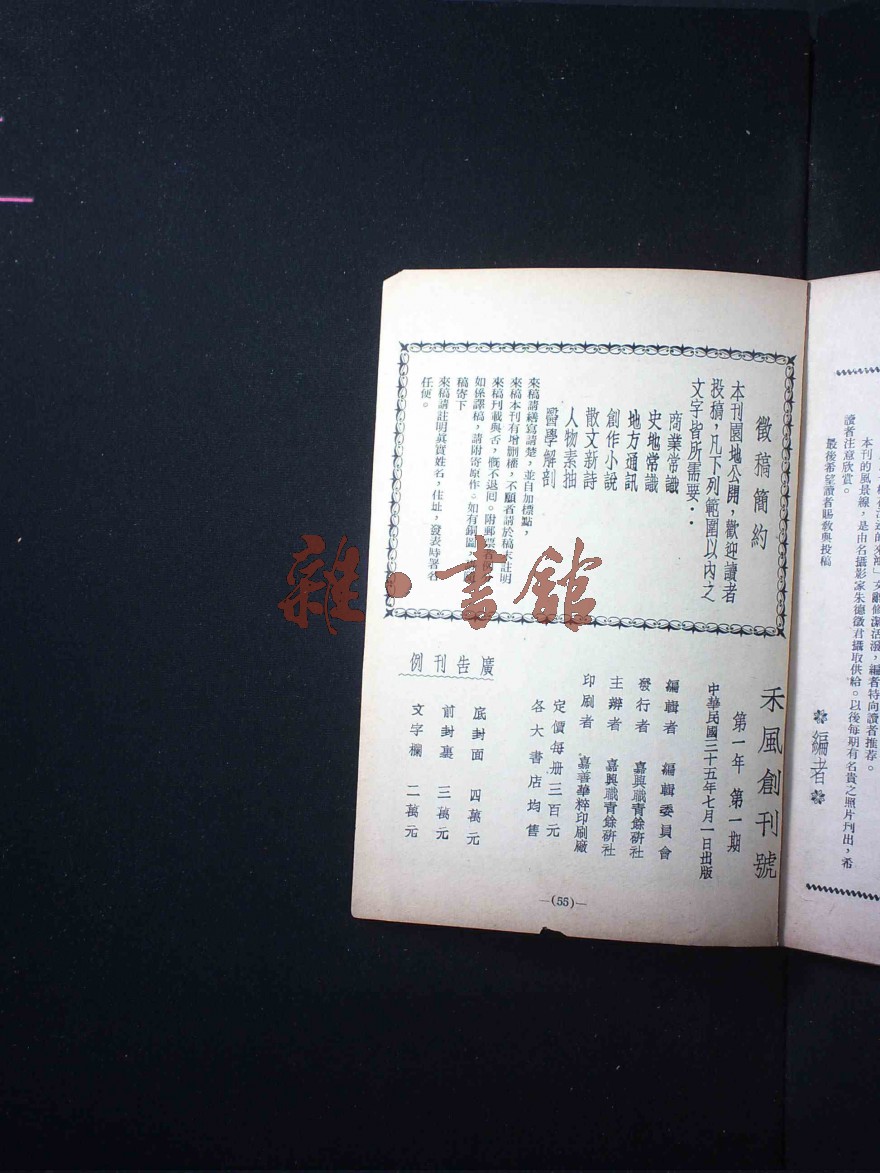 本刊的風景線，是由名攝影家朱德徵君攝取供給。以後每期有名貴之照片刊出，希
讀者注意欣賞。
最後希望讀者賜教與投稿
編者
徵稿簡約
本刊園地公開，歡迎讀者
投稿，凡下列範圍以內之
文字皆所需要：
商業常識
史地常識
地方通訊
創作小說
散文新詩
人物素抽
醫學解剖
來稿請繕寫請楚，並自加標點，
來稿本刊有增删權，不願者請於稿末註明
來稿刊載與否，概不退囘。附郵票
如係譯稿，請附寄原作。如有銅圖，
稿寄下
來稿請註明眞實姓名，住址，發表時署名
任便。
禾風創刊號
第一年 第一期
中華民國三十五年七月一日出版
編輯者 編輯委員會
發行者 嘉興職青餘硏社
主辦者 嘉興職青餘硏社
印刷者 嘉善華粹印刷廠
定價每册三百元
各大書店均售
廣告刊例
底封面 四萬元
前封裏 三萬元
文字欄 二萬元
—(55)—
雜·書館